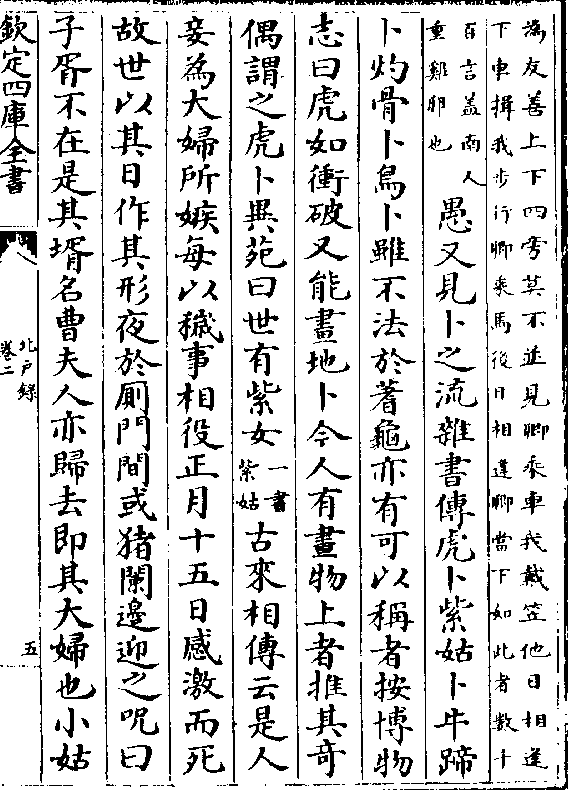 為友善上下四旁莫不並見卿乘車我戴笠他日相逢
下車揖我步行卿乘馬後日相逢卿當下如此者數十
百言盖南人
重雞卵也
愚又見卜之流雜書傳虎卜紫姑卜牛蹄
卜灼骨卜鳥卜雖不法於蓍龜亦有可以稱者按博物
志曰虎如衝破又能畫地卜今人有畫物上者推其奇
偶謂之虎卜異苑曰世有紫女一書紫姑古來相傳云是人
妾為大婦所嫉每以穢事相役正月十五日感激而死
故世以其日作其形夜於厠門間或猪闌邊迎之呪曰
子胥不在是其壻名曹夫人亦歸去即其大婦也小姑
欽定四庫全書
北戶錄
卷二
五